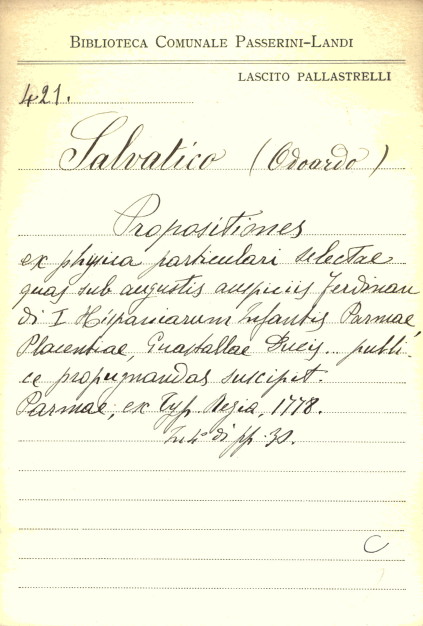 BIBLIOTECA COMUNALE PASSERINI-LANDI
LASCITO PALLASTRELLI
421.
Salvatico (Odoardo)
Propositiones
ex physica particulari selectae
quas sub augustis auspiciis Ferdinan
di I Hispanicarum Infantis Parmae,
Placentiae, Guastallae Ducis... publi-
ce propugnandas suscipit.
Parmae, ex Typ. Regia, 1778.
In 4° di pp. 30.
C